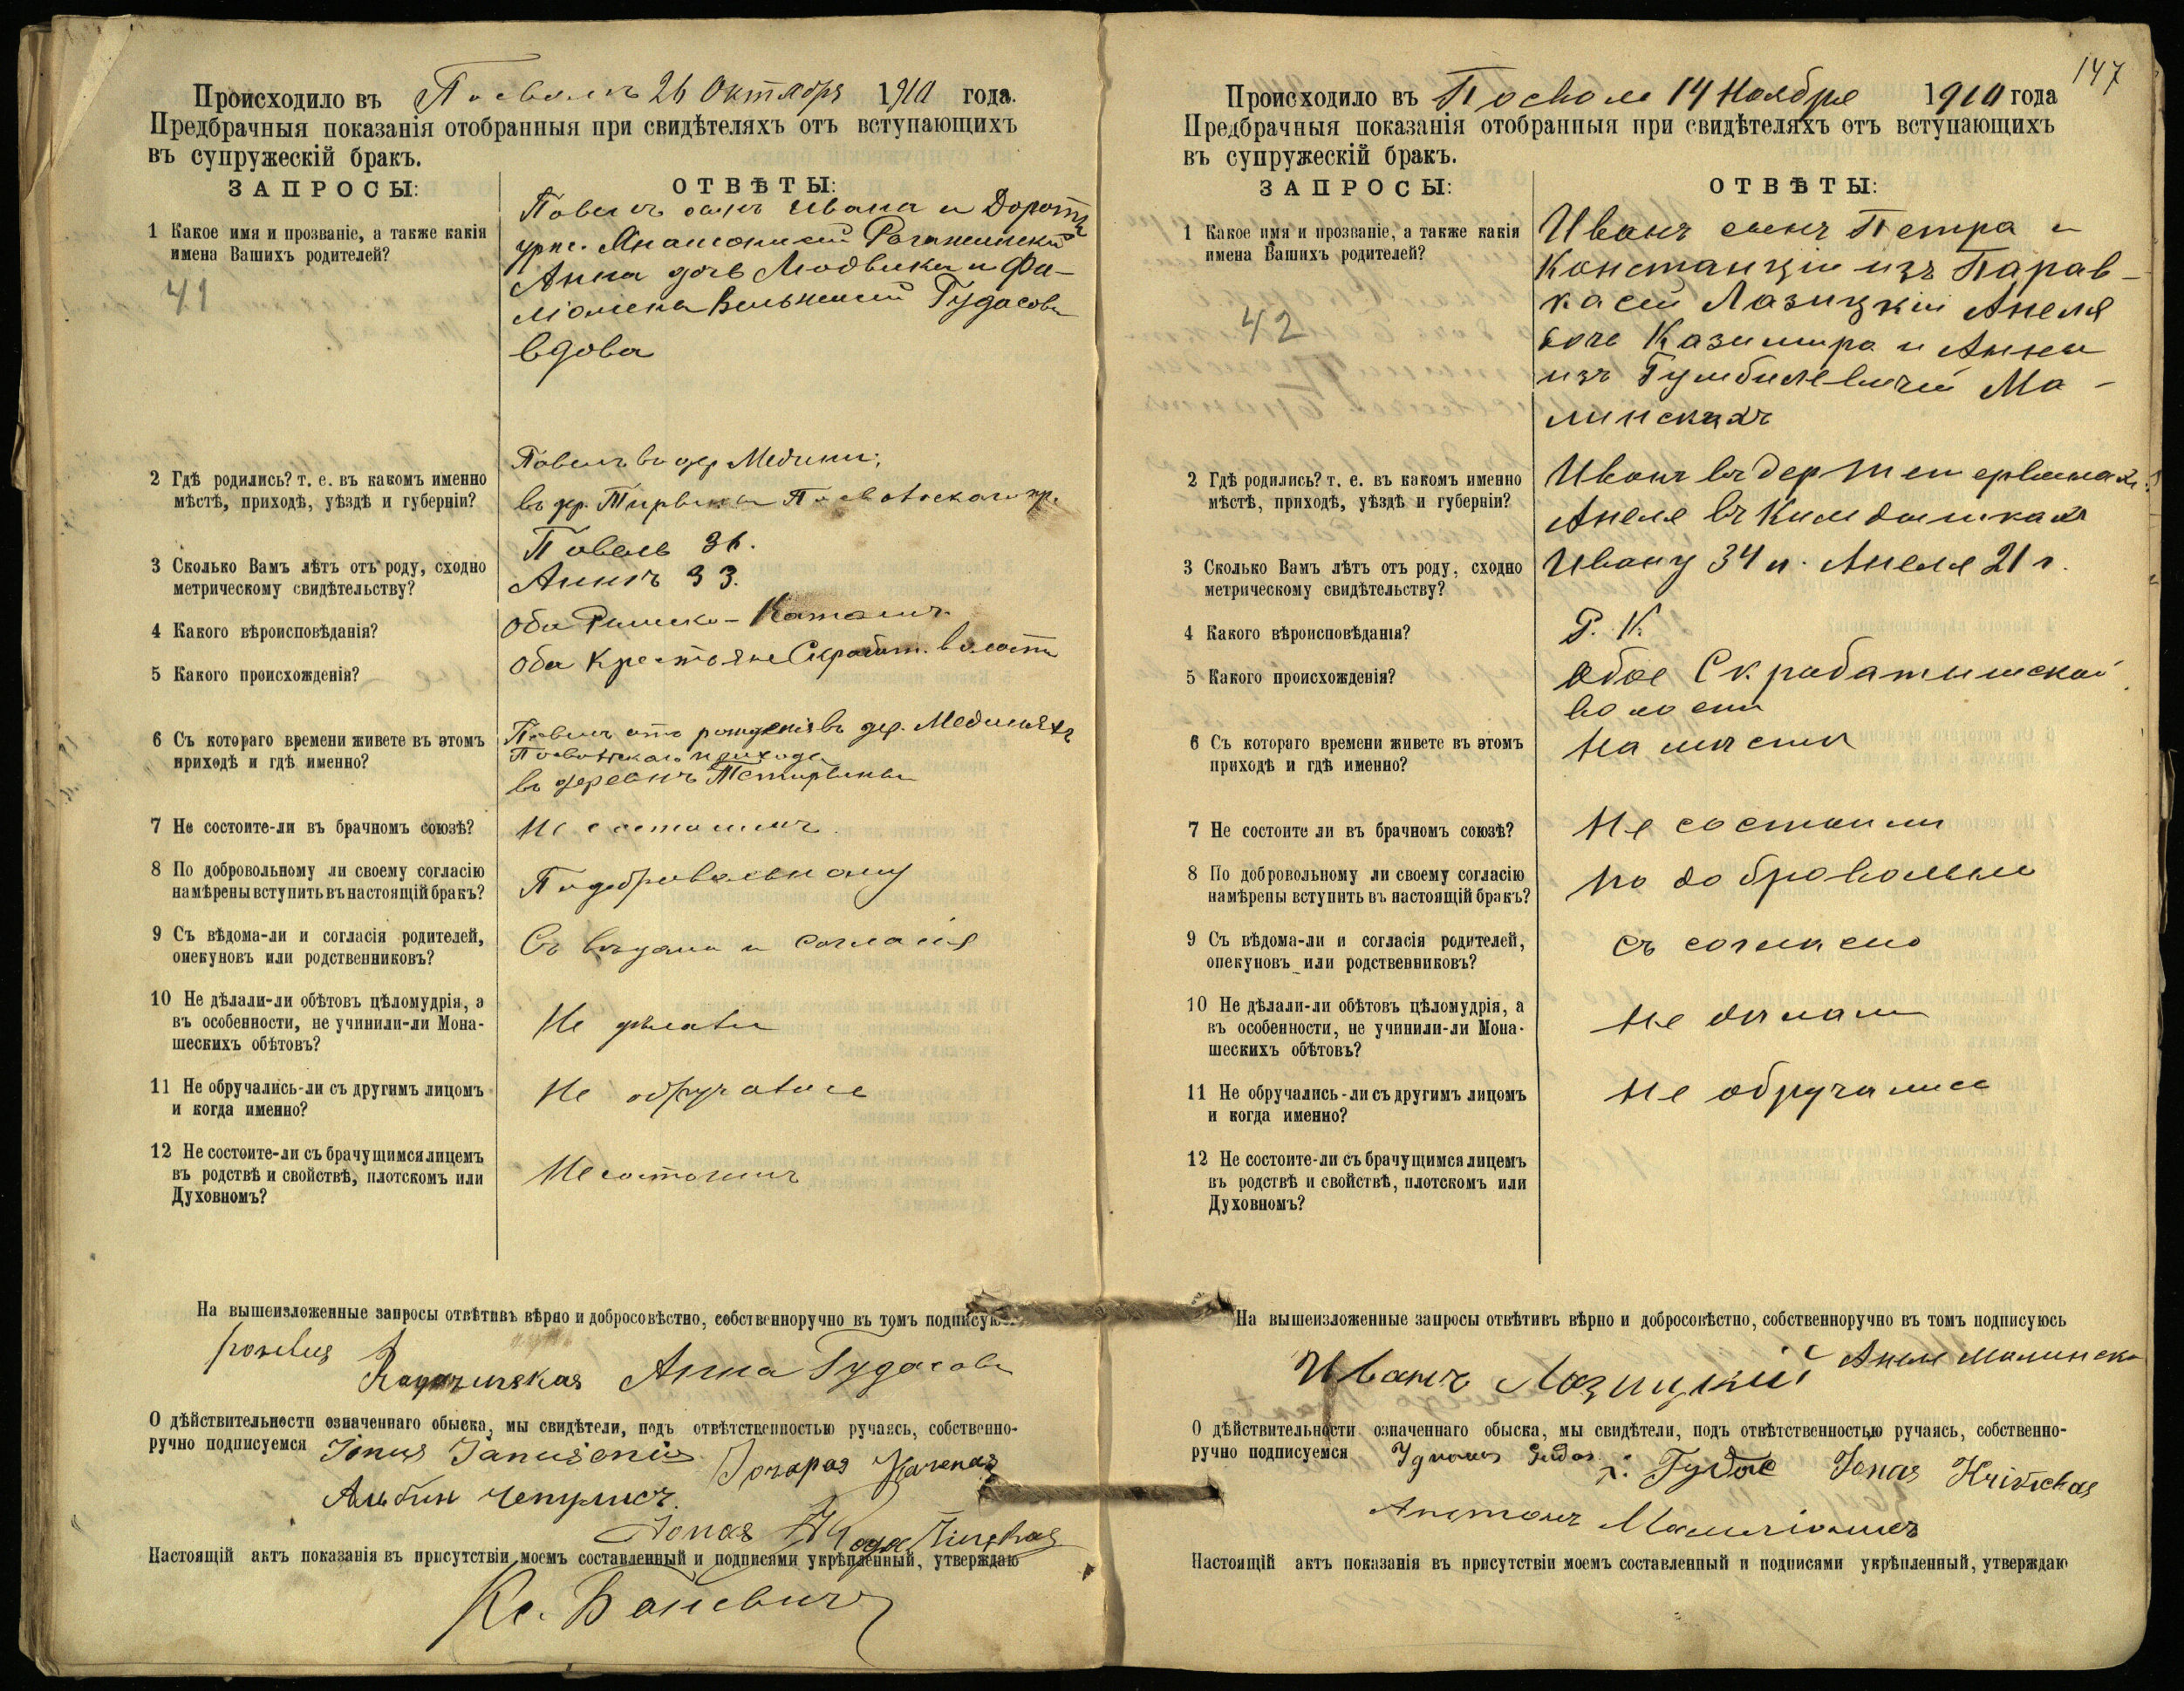 Происходило въ 26 Октября 1910 года.
Предбрачныя показанія отобранныя при свидѣтеляхъ отъ вступающихъ
въ супружескій бракъ.
ЗАПРОСЫ:
ОТВѢТЫ:
1 Какое имя и прозваніе, а также какія
имена Вашихъ родителей?
41
Павелъ сынъ Ивана и Дороты
Анна дочь Людвика и Фи-
Гудасова
вдова
2 Гдѣ родились? т. е. въ какомъ именно
мѣстѣ, приходѣ, уѣздѣ и губерніи?
Павелъ въ дер.
въ др.
3 Сколько Вамъ лѣтъ отъ роду, сходно
метрическому свидѣтельству?
Павелъ 36.
Аннѣ 33.
4 Какого вѣроисповѣданія?
Оба Римско-Католич.
5 Какого происхожденія?
Оба Крестьяне Скробот. волости
6 Съ котораго времени живете въ этомъ
приходѣ и гдѣ именно?
Павелъ отъ рожденія въ дер.
прихода
въ деревнѣ
7 Не состоите-ли въ брачномъ союзѣ?
Не состоимъ
8 По добровольному ли своему согласію
намѣрены вступить въ настоящій бракъ?
По добровольному
9 Съ вѣдома-ли и согласія родителей,
опекуновъ или родственниковъ?
Съ вѣдома и согласія
10 Не дѣлали-ли обѣтовъ цѣломудрія, а
въ особенности, не учинили-ли Мона-
шескихъ обѣтовъ?
Не дѣлали
11 Не обручались-ли съ другимъ лицомъ
и когда именно?
Не обручались
12 Не состоите-ли съ брачущимся лицемъ
въ родствѣ и свойствѣ, плотскомъ или
Духовномъ?
Не состоимъ
На вышеизложенные запросы отвѣтивъ вѣрно и добросовѣстно, собственноручно въ томъ подписуюсь
Анна Гудасова
О дѣйствительности означеннаго обыска, мы свидѣтели, подъ отвѣтственностью ручаясь, собственно-
ручно подписуемся
Альбин Чепулисъ.
Jonas
Настоящій актъ показанія въ присутствіи моемъ составленный и подписями укрѣпленный, утверждаю
Кс. Баневичъ
147
Происходило въ 14 Ноября 1910 года
Предбрачныя показанія отобранныя при свидѣтеляхъ отъ вступающихъ
въ супружескій бракъ.
ЗАПРОСЫ:
ОТВѢТЫ:
1 Какое имя и прозваніе, а также какія
имена Вашихъ родителей?
42
Иванъ сынъ Петра и
Констанціи изъ Парав-
Лазицкій Анеля
дочь Казимира и Анны
изъ Ма-
линскихъ
2 Гдѣ родились? т. е. въ какомъ именно
мѣстѣ, приходѣ, уѣздѣ и губерніи?
Иванъ въ дер
Анеля въ
3 Сколько Вамъ лѣтъ отъ роду, сходно
метрическому свидѣтельству?
Ивану 34 л. Анеля 21 г.
4 Какого вѣроисповѣданія?
Р. К.
5 Какого происхожденія?
Обое
волости
6 Съ котораго времени живете въ этомъ
приходѣ и гдѣ именно?
На мѣстѣ
7 Не состоите ли въ брачномъ союзѣ?
Не состоили
8 По добровольному ли своему согласію
намѣрены вступить въ настоящій бракъ?
По добровольно
9 Съ вѣдома-ли и согласія родителей,
опекуновъ или родственниковъ?
10 Не дѣлали-ли обѣтовъ цѣломудрія, а
въ особенности, не учинили-ли Мона-
шескихъ обѣтовъ?
Не дѣлали
11 Не обручались-ли съ другимъ лицомъ
и когда именно?
Не обручались
12 Не состоите-ли съ брачущимся лицемъ
въ родствѣ и свойствѣ, плотскомъ или
Духовномъ?
На вышеизложенные запросы отвѣтивъ вѣрно и добросовѣстно, собственноручно въ томъ подписуюсь
Иванъ Лазицкій Анеля Малинска
О дѣйствительности означеннаго обыска, мы свидѣтели, подъ отвѣтственностью ручаясь, собственно-
ручно подписуемся Jonas
Антонъ
Настоящій актъ показанія въ присутствіи моемъ составленный и подписями укрѣпленный, утверждаю